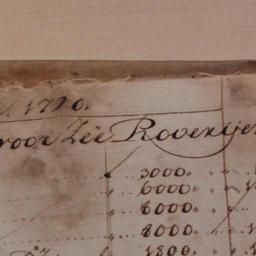 1790.
voor Zee Rovenije
3000.
6000.
8000.
8000.
1800.